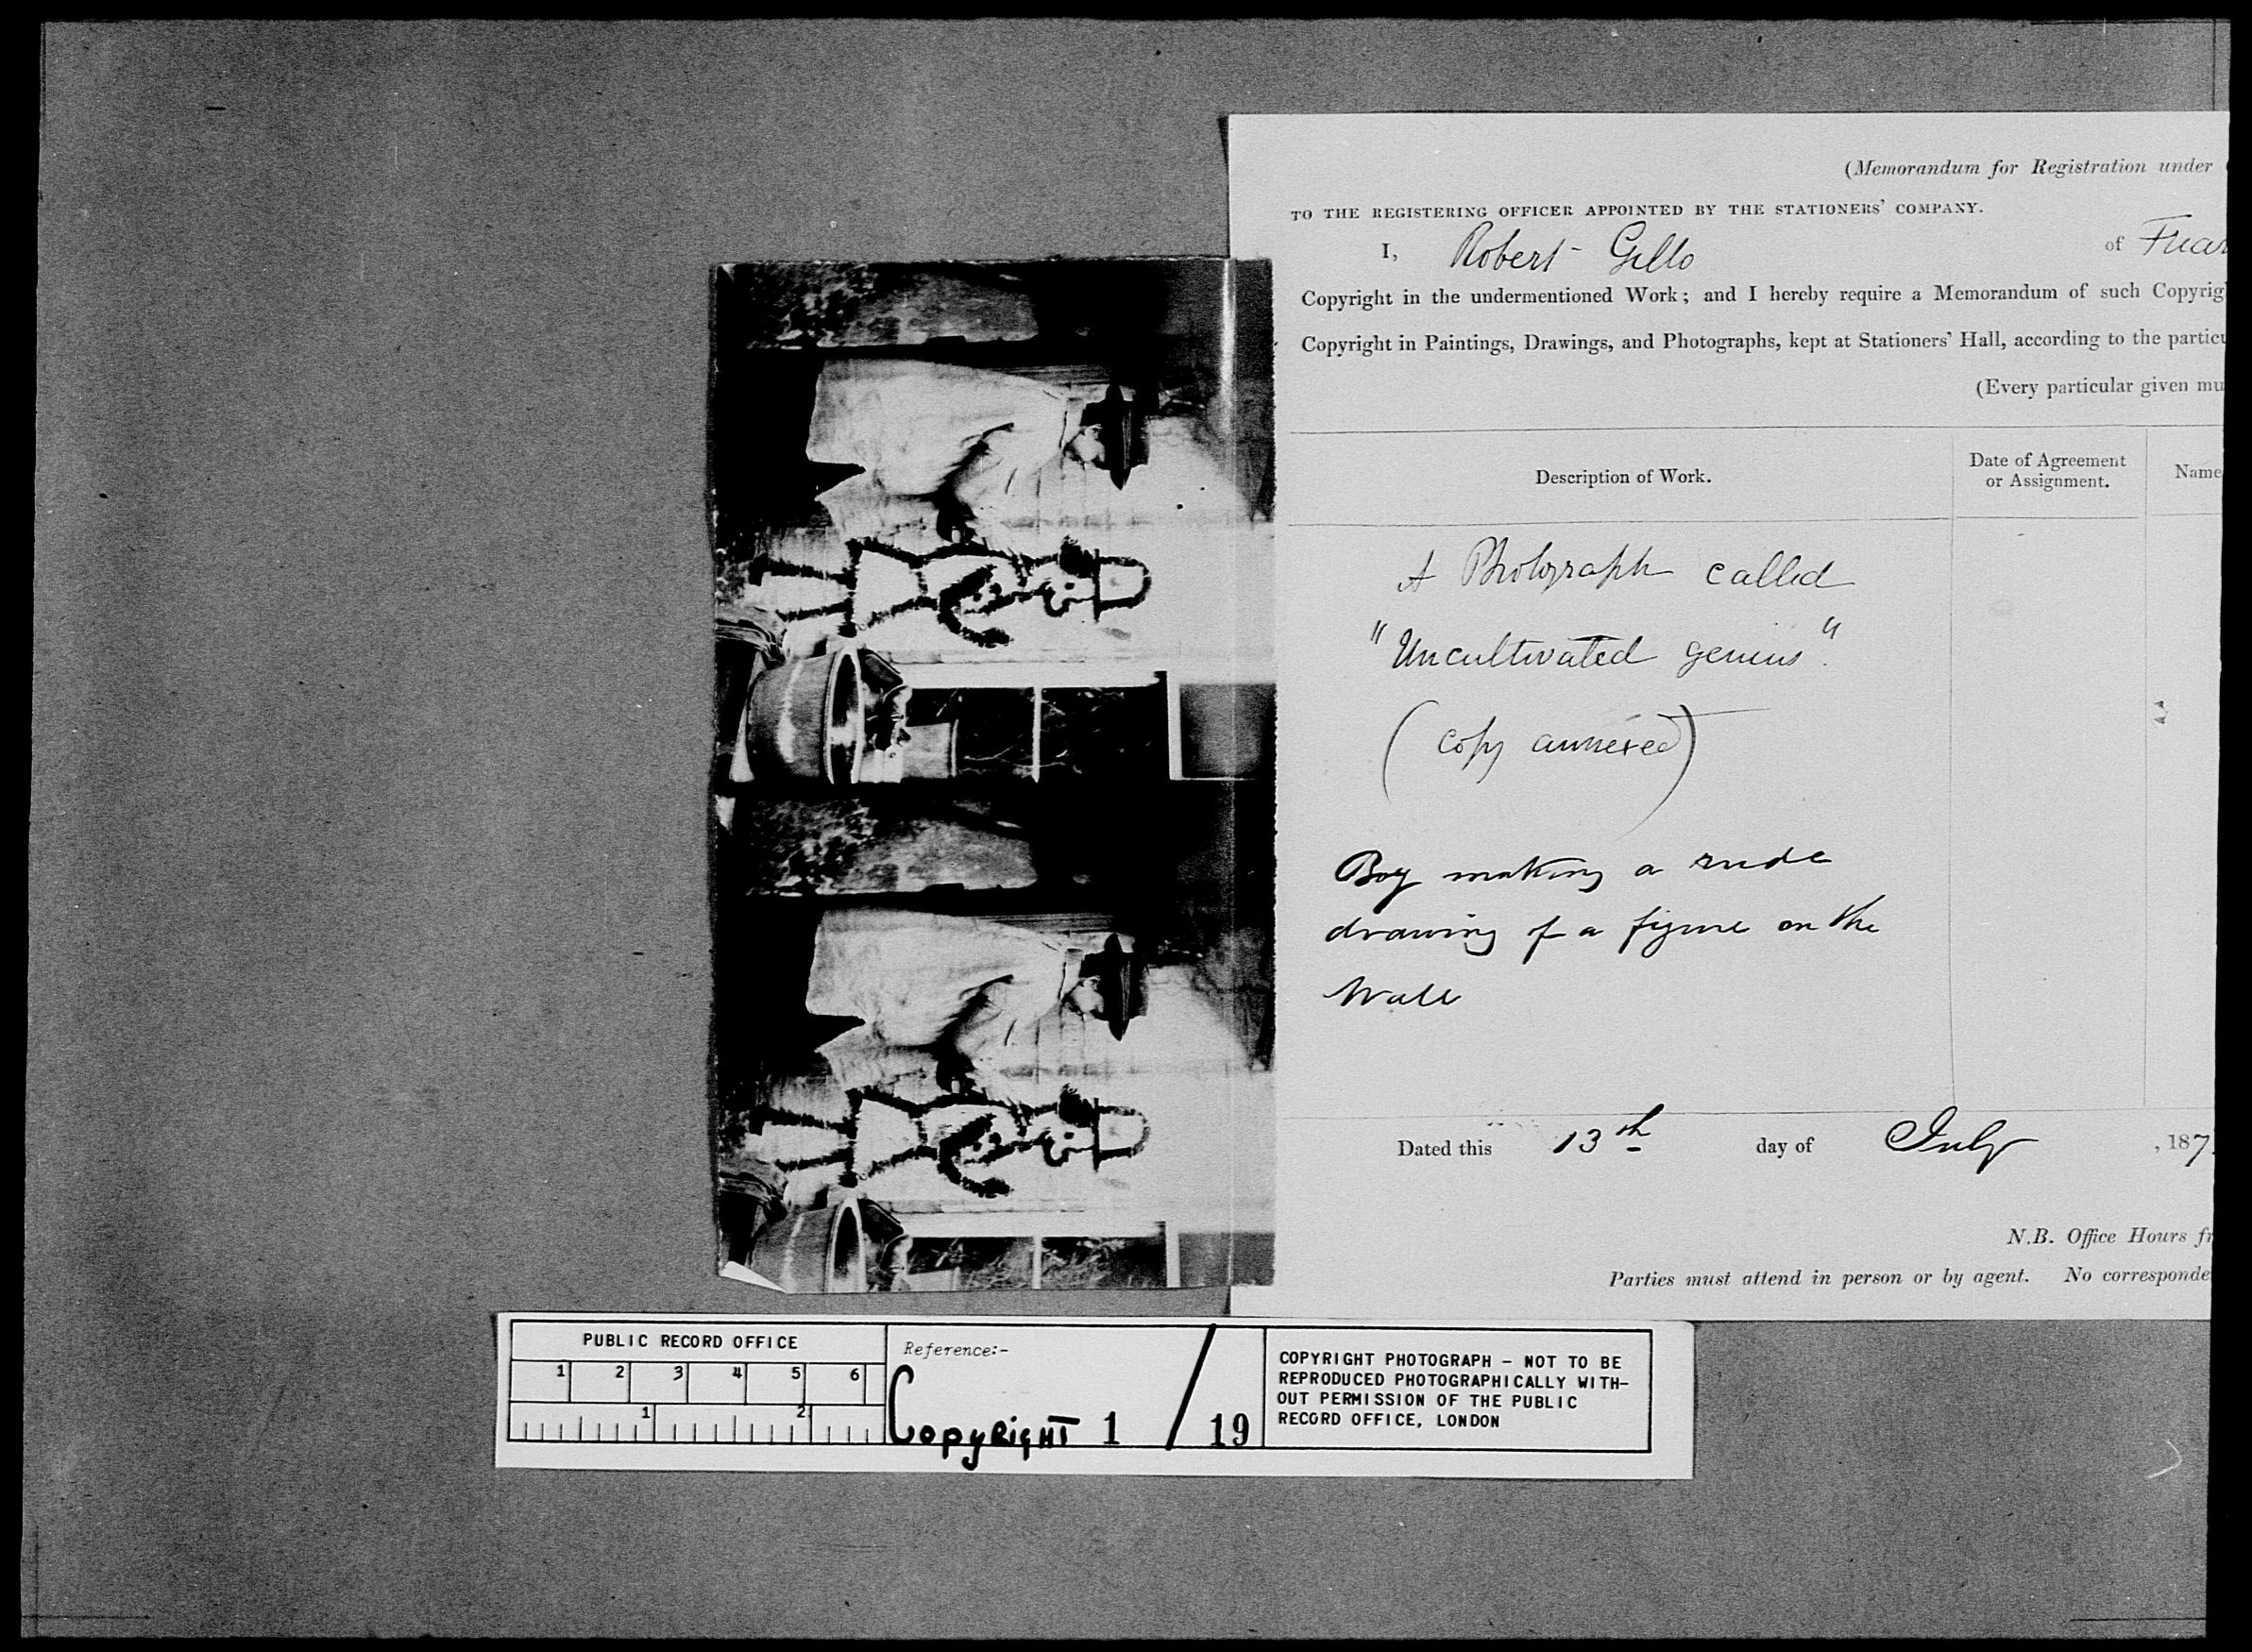 (Memorandum for Registration under
TO THE REGISTERING OFFICER APPOINTED BY THE STATIONERS' COMPANY.
I, Robert Gillo of
Copyright in the undermentioned Work; and I hereby require a Memorandum of such Copyrig
Copyright in Paintings, Drawings, and Photographs, kept at Stationers' Hall, according to the particu
(Every particular given mu
Description of Work.
Date of Agreement
or Assignment.
Name
A Photograph called
"Uncultivated genius".
(Copy annexed)
Boy making a rude
drawing of a figure on the
Wall
Dated this 13th day of July , 187
N.B. Office Hours fr
Parties must attend in person or by agent. No corresponde
PUBLIC RECORD OFFICE
1 2 3 4 5 6
1 2
Reference:-
COPYRIGHT 1 / 19
COPYRIGHT PHOTOGRAPH - NOT TO BE
REPRODUCED PHOTOGRAPHICALLY WITH-
OUT PERMISSION OF THE PUBLIC
RECORD OFFICE, LONDON